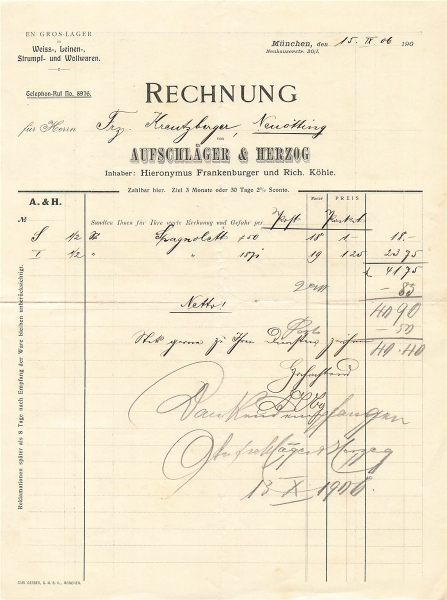 EN GROS-LAGER
in
Weiss-, Leinen-,
Strumpf- und Wollwaren.
Telephon-Ruf No. 8976.
München, den 15. IX 06 190
Neuhauserstr. 20/I.
RECHNUNG
für Herrn Frz. Kreutzberger, Neuötting
von
AUFSCHLÄGER & HERZOG
Inhaber: Hieronymus Frankenburger und Rich. Köhle.
Zahlbar hier. Ziel 3 Monate oder 30 Tage 2% Sconto.
A. & H.
№ Sandten Ihnen für Ihre werte Rechnung und Gefahr per Post Packet Meter PREIS
S 1/2 Spagnolett 18 1.- 18.-
I 1/2 " 19 1 25 23 75
41 75
- 85
Netto! 40 90
Porto - 50
Stets gerne zu Ihren Diensten 40.40
Hochachtend
Dankend empfangen
Aufschläger & Herzog
13 X 1906.
Reklamationen später als 8 Tage nach Empfang der Ware bleiben unberücksichtigt.